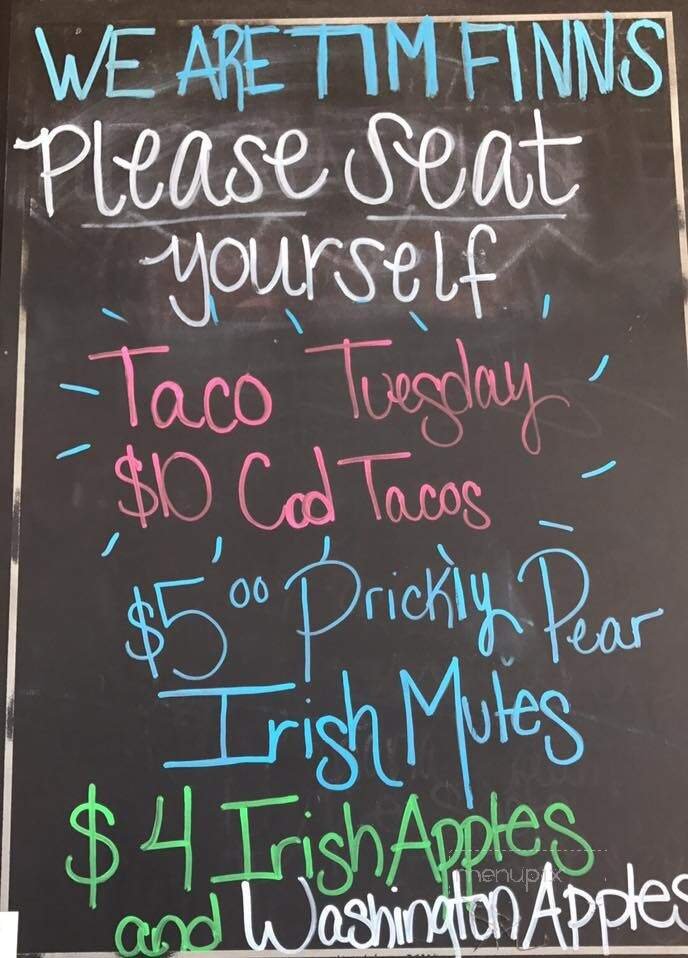 WE ARE TIM FINNS
Please Seat
yourself
Taco Tuesday
$10 Cod Tacos
$5.00 Prickly Pear
Irish Mules
$4 Irish Apples
menupix
and Washington Apples